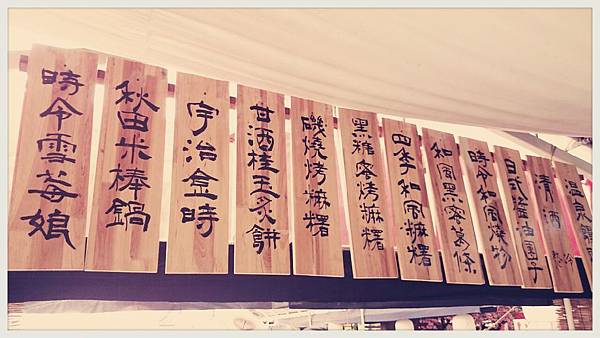 時令雪莓娘
秋田米棒鍋
宇治金時
甘酒桂玉炙餅
磯燒烤麻糬
黑糖蜜烤麻糬
四季和風麻糬
和風黑蜜葛條
時令和風燒物
日式醬油團子
清酒
溫泉